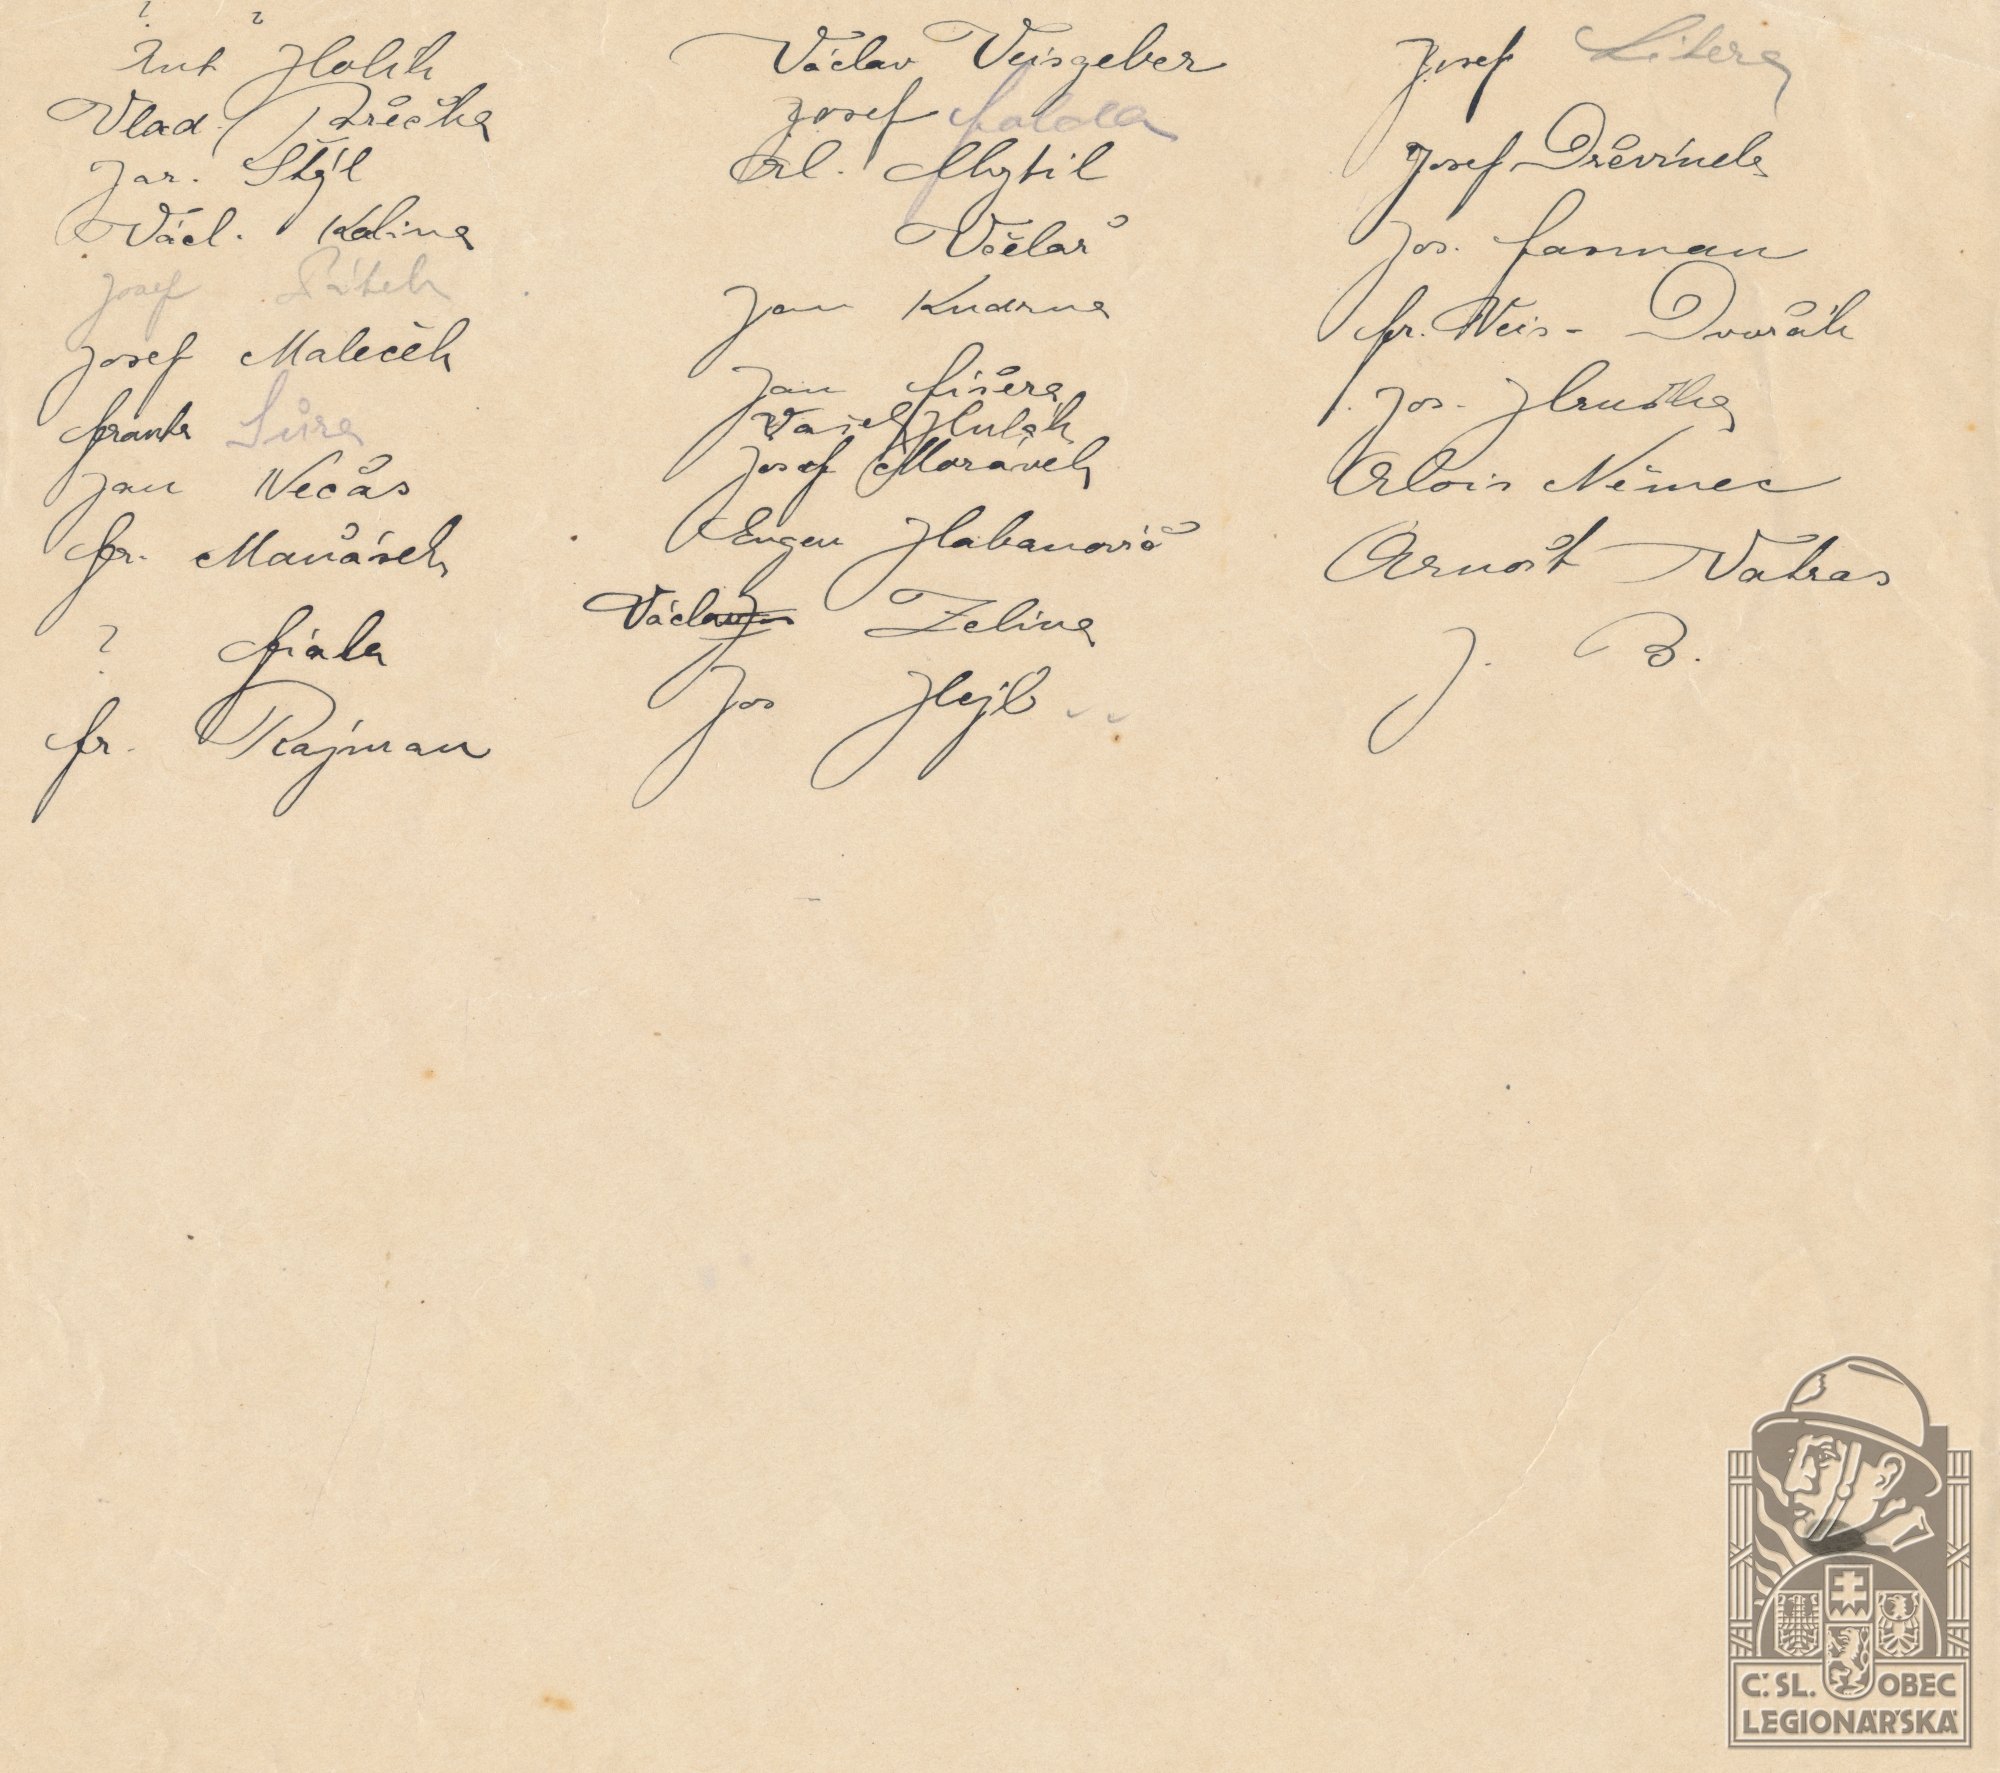 ? ?
Ant Holík
Vlad. Pařečka
Jar. Stýl
Václ. Kalina
Josef
Josef Maleček
Franta Sůra
Jan Nečas
Fr. Maňásek
? Fiala
Fr. Rajman
Václav Veisgeber
Josef
Al. Chytil
Včelař
Jan Kudrna
Jan Fišera
Hulák
Josef Morávek
Eugen Habanovič
Václav Zelina
Jos Hejl
Josef Litera
Josef Dřevínek
Jos. Farman
Fr. Weis - Dvořák
Jos. Hruška
Alois Němec
Arnošt Vatras
J. B.
Č.SL. OBEC
LEGIONÁŘSKÁ